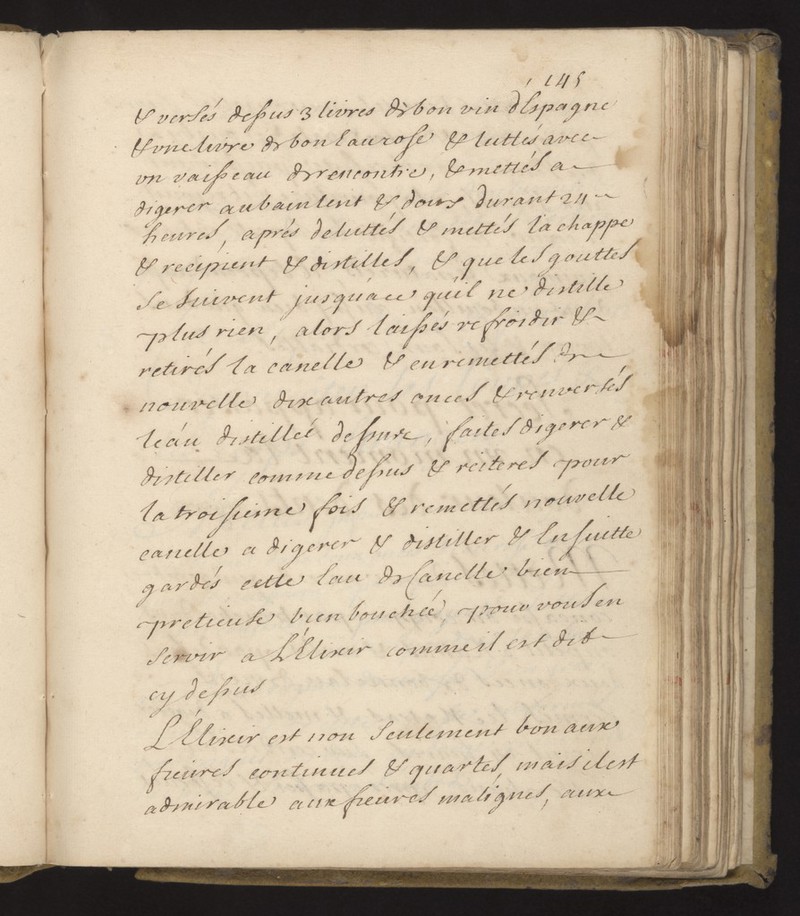 145
& versés dessus 3 livres de bon vin d'Espagne
& vne livre de bon Eau rose & luttés avec
vn vaisseau de rencontre, & mettés a
digerer au bain lent & doux durant 24
heures, aprés deluttés & mettés la chappe
& recipient & distilles, & que les gouttes
se suivent jusqua ce qu'il ne distille
plus rien, alors laissés refroidir &
retirés la canelle & en remettés de
nouvelle dix autres onces & renversés
leau distilleé dessure, faites digerer &
distiller comme dessus & reiteres pour
la troisieme fois & remettés nouvelle
canelle a digerer & distiller & Ensuitte
gardés cette Eau de Canelle bien
pretieuse bien bouchée, pour vous en
servir a L'Elixir comme il est dit
cy dessus
L'Elixir est non seulement bon aux
fieures continues & quartes, mais il est
admirable aux fieures malignes, aux